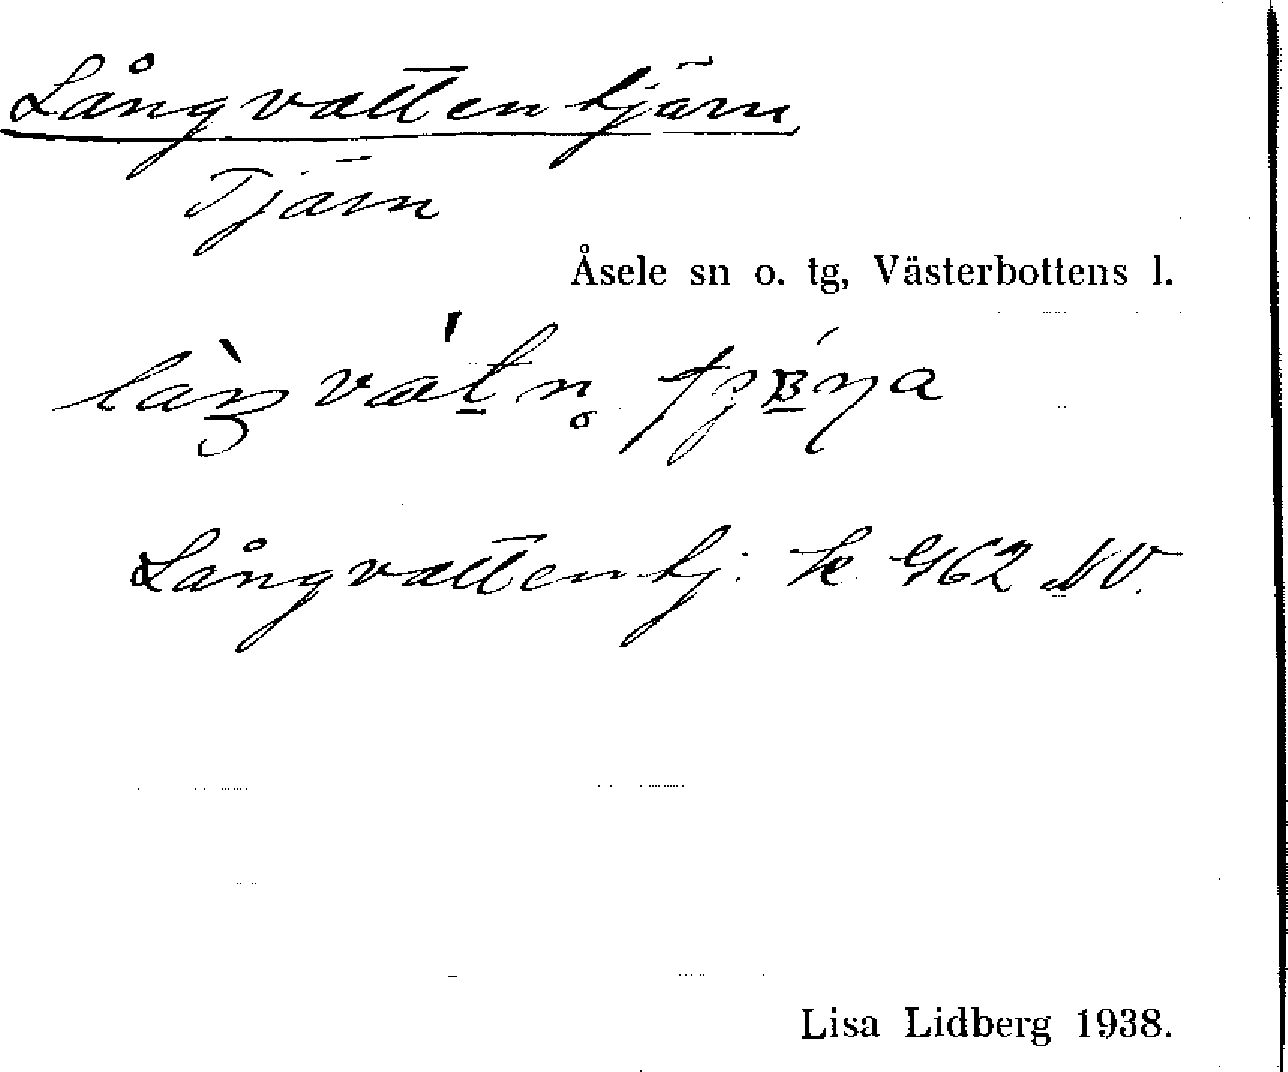 Långvattentjärn
Tjärn
Åsele sn o. tg, Västerbottens l.
Långvattentj. k 462 NV.
Lisa Lidberg 1938.